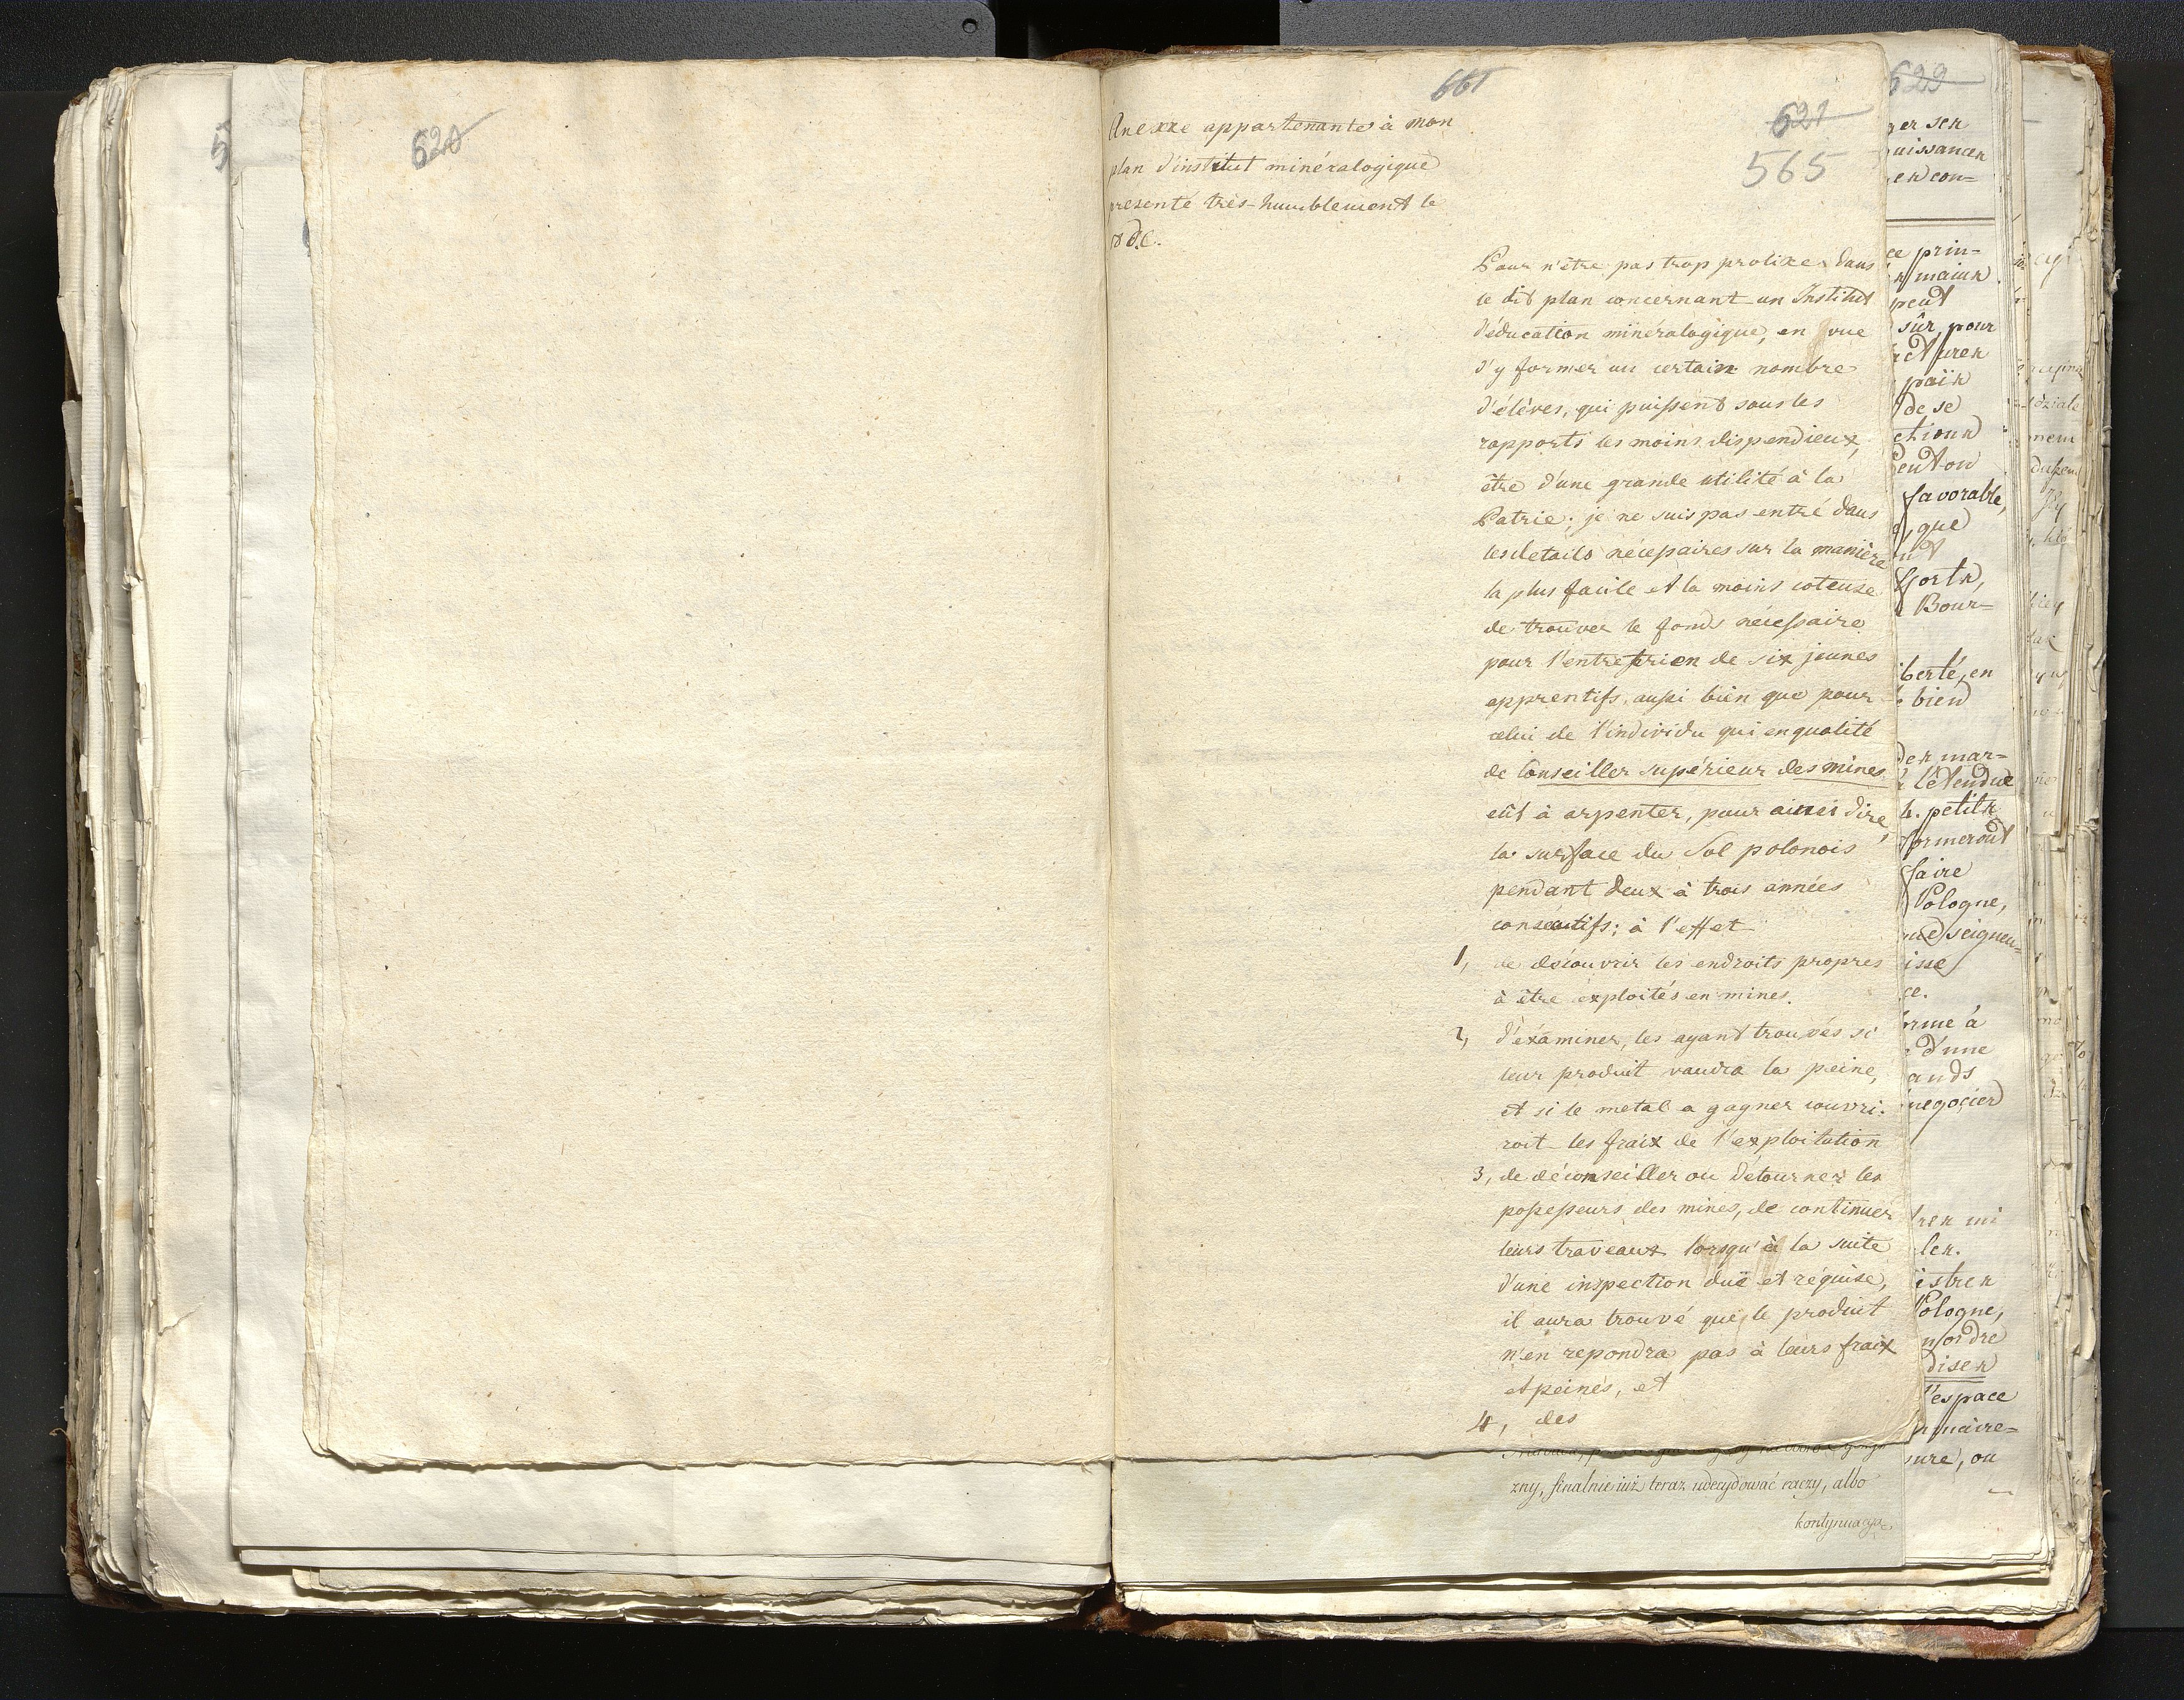 620
661
621
565
Anexxe appartenante à mon
plan d'institut minéralogique
presenté très-humblement le
d.C.
Pour n'être pas trop prolixe dans
le dit plan concernant un Institut
d'éducation minéralogique, en vue
d'y former un certain nombre
d'élèves, qui puissent sous les
rapports les moins dispendieux,
être d'une grande utilité à la
Patrie; je ne suis pas entré dans
les details nécessaires sur la manière
la plus facile et la moins coteuse
de trouver le fonds nécessaire
pour l'entretien de six jeunes
apprentifs, aussi bien que pour
celui de l'individu qui en qualité
de Conseiller supérieur des mines
eût à arpenter, pour ainsi dire,
la surface du Sol polonois
pendant deux à trois années
consécutifs; à l'effet
1, de découvrir les endroits propres
à être exploités en mines.
2, d'éxaminer, les ayant trouvés si
leur produit vaudra la peine,
et si le metal a gagner couvri-
roit les fraix de l'exploitation
3, de déconseiller ou détourner les
possesseurs des mines, de continuer
leurs traveaux lorsqu'à la suite
d'une inspection duë et réquise,
il aura trouvé que le produit
n'en repondra pas à leurs fraix
et peines, et
4, des
zny, finalnie iuż teraz udecydować raczy, albo
kontynuacya
629
ger sen
uissancen
en con=
ce prin=
mainn
peut
sûr, pour
cturen
païn
de se
ctionn
Peut-on
favorable,
que
Bour=
iberté, en
bien
den mar=
l'étendue
h. petitn
formeront
faire
Pologne,
seigneu=
isse
ce.
orme à
d'une
ands
negocier
len.
estren
Pologne,
ordre
disen
l'espace
naire=
sure, ou